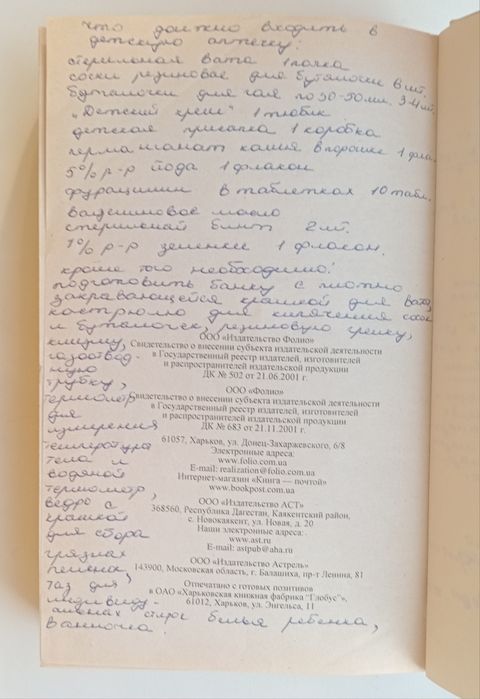 Что должно входить в
детскую аптечку:
стерильная вата 1 пачка
соски резиновые для бутылочки 8 шт.
бутылочки для чая по 30-50 мл. 3-4 шт.
"Детский крем" 1 тюбик
детская присыпка 1 коробка
перманганат калия в порошке 1 фла.
5% р-р йода 1 флакон
фурацилин в таблетках 10 табл.
вазелиновое масло
стерильный бинт 2 шт.
1% р-р зеленки 1 флакон.
кроме того необходимо:
подготовить банку с плотно
закрывающейся крышкой для ваты,
кострюлю для кипячения сосок
и бутылочек, резиновую грелку,
клизму,
газоотвод-
ную
трубку,
термометр
для
измерения
температуры
тела и
водяной
термометр,
ведро с
крышкой
для сбора
грязных
пеленок,
таз для
индивиду-
альных стирок белья ребенка,
ванночка.
ООО «Издательство Фолио»
Свидетельство о внесении субъекта издательской деятельности
в Государственный реестр издателей, изготовителей
и распространителей издательской продукции
ДК № 502 от 21.06.2001 г.
ООО «Фолио»
Свидетельство о внесении субъекта издательской деятельности
в Государственный реестр издателей, изготовителей
и распространителей издательской продукции
ДК № 683 от 21.11.2001 г.
61057, Харьков, ул. Донец-Захаржевского, 6/8
Электронные адреса:
www.folio.com.ua
E-mail: realization@folio.com.ua
Интернет-магазин «Книга — почтой»
www.bookpost.com.ua
ООО «Издательство АСТ»
368560, Республика Дагестан, Каякентский район,
с. Новокаякент, ул. Новая, д. 20
Наши электронные адреса:
www.ast.ru
E-mail: astpub@aha.ru
ООО «Издательство Астрель»
143900, Московская область, г. Балашиха, пр-т Ленина, 81
Отпечатано с готовых позитивов
в ОАО «Харьковская книжная фабрика "Глобус"»,
61012, Харьков, ул. Энгельса, 11